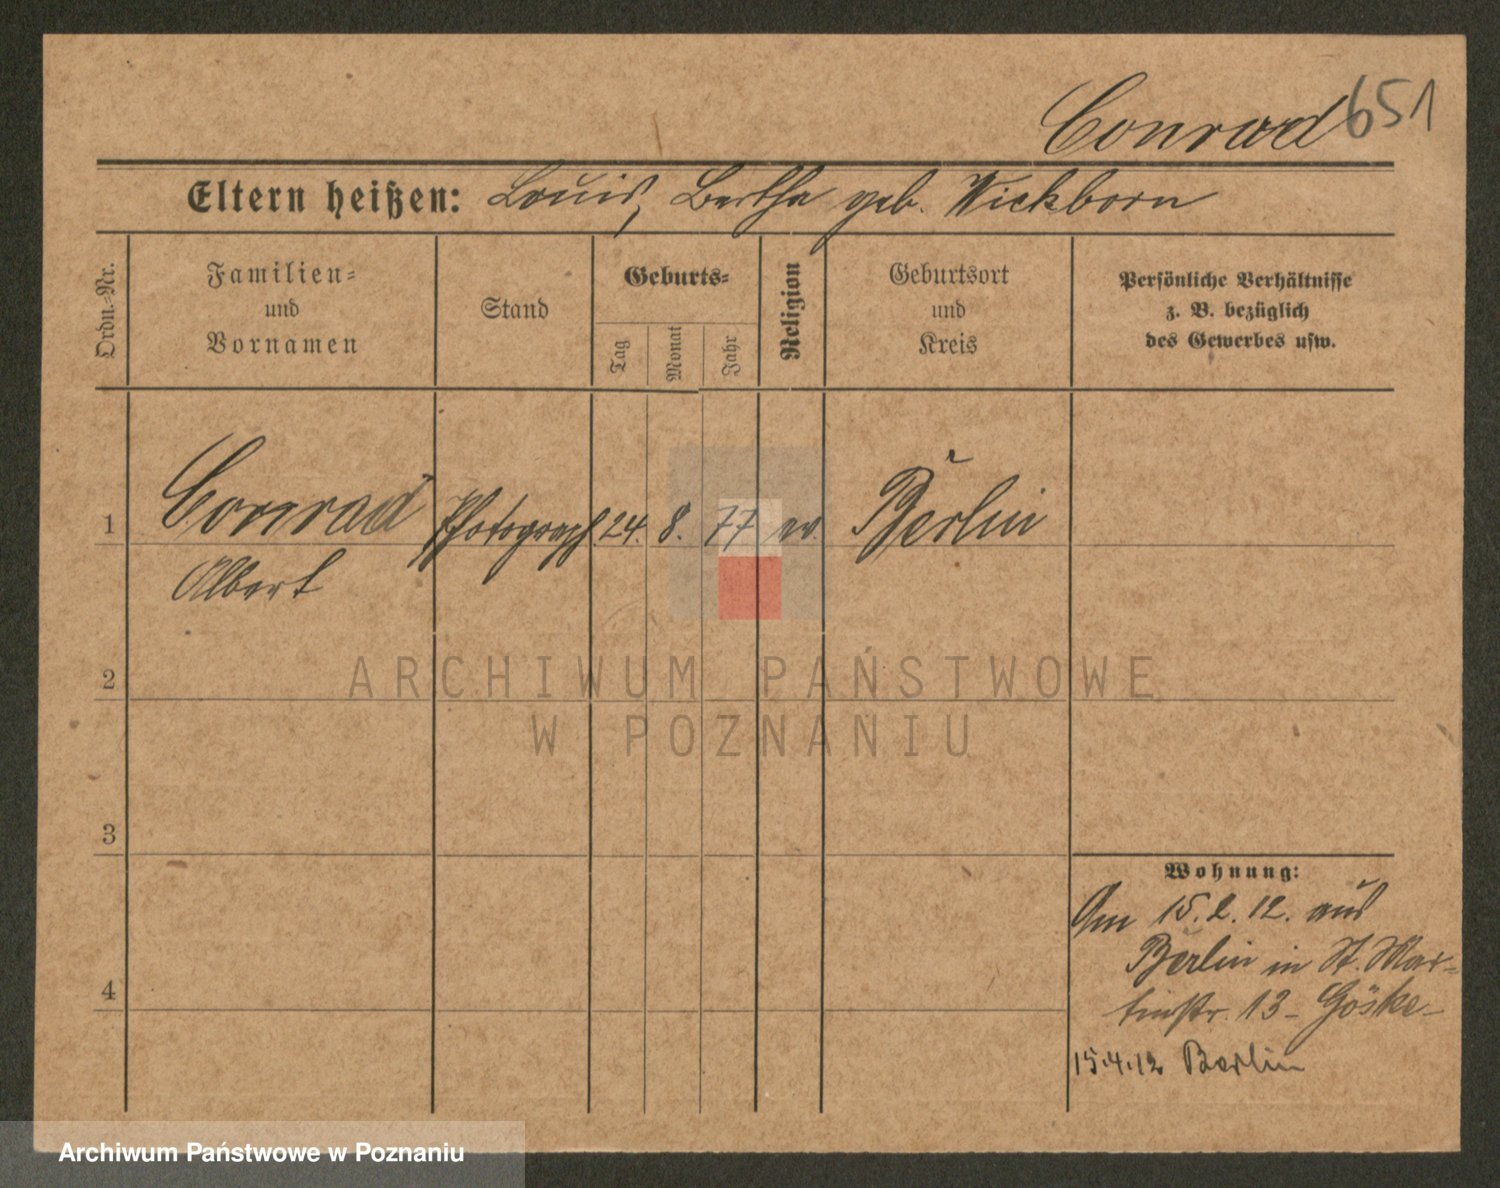 Conrad 651
Eltern heißen: Louis, Bertha geb. Wickborn
Ordn.-Nr.
Familien-
und
Vornamen
Stand
Geburts-
Tag
Monat
Jahr
Religion
Geburtsort
und
Kreis
Persönliche Verhältnisse
z. B. bezüglich
des Gewerbes usw.
1 Conrad Photograph 24. 8. 77 ev Berlin
Albert
2
ARCHIWUM PAŃSTWOWE
W POZNANIU
3
Wohnung:
Am 15.2.12. aus
Berlin in St. Mar-
4
tinstr. 13 - Göske -
15.4.12 Berlin
Archiwum Państwowe w Poznaniu